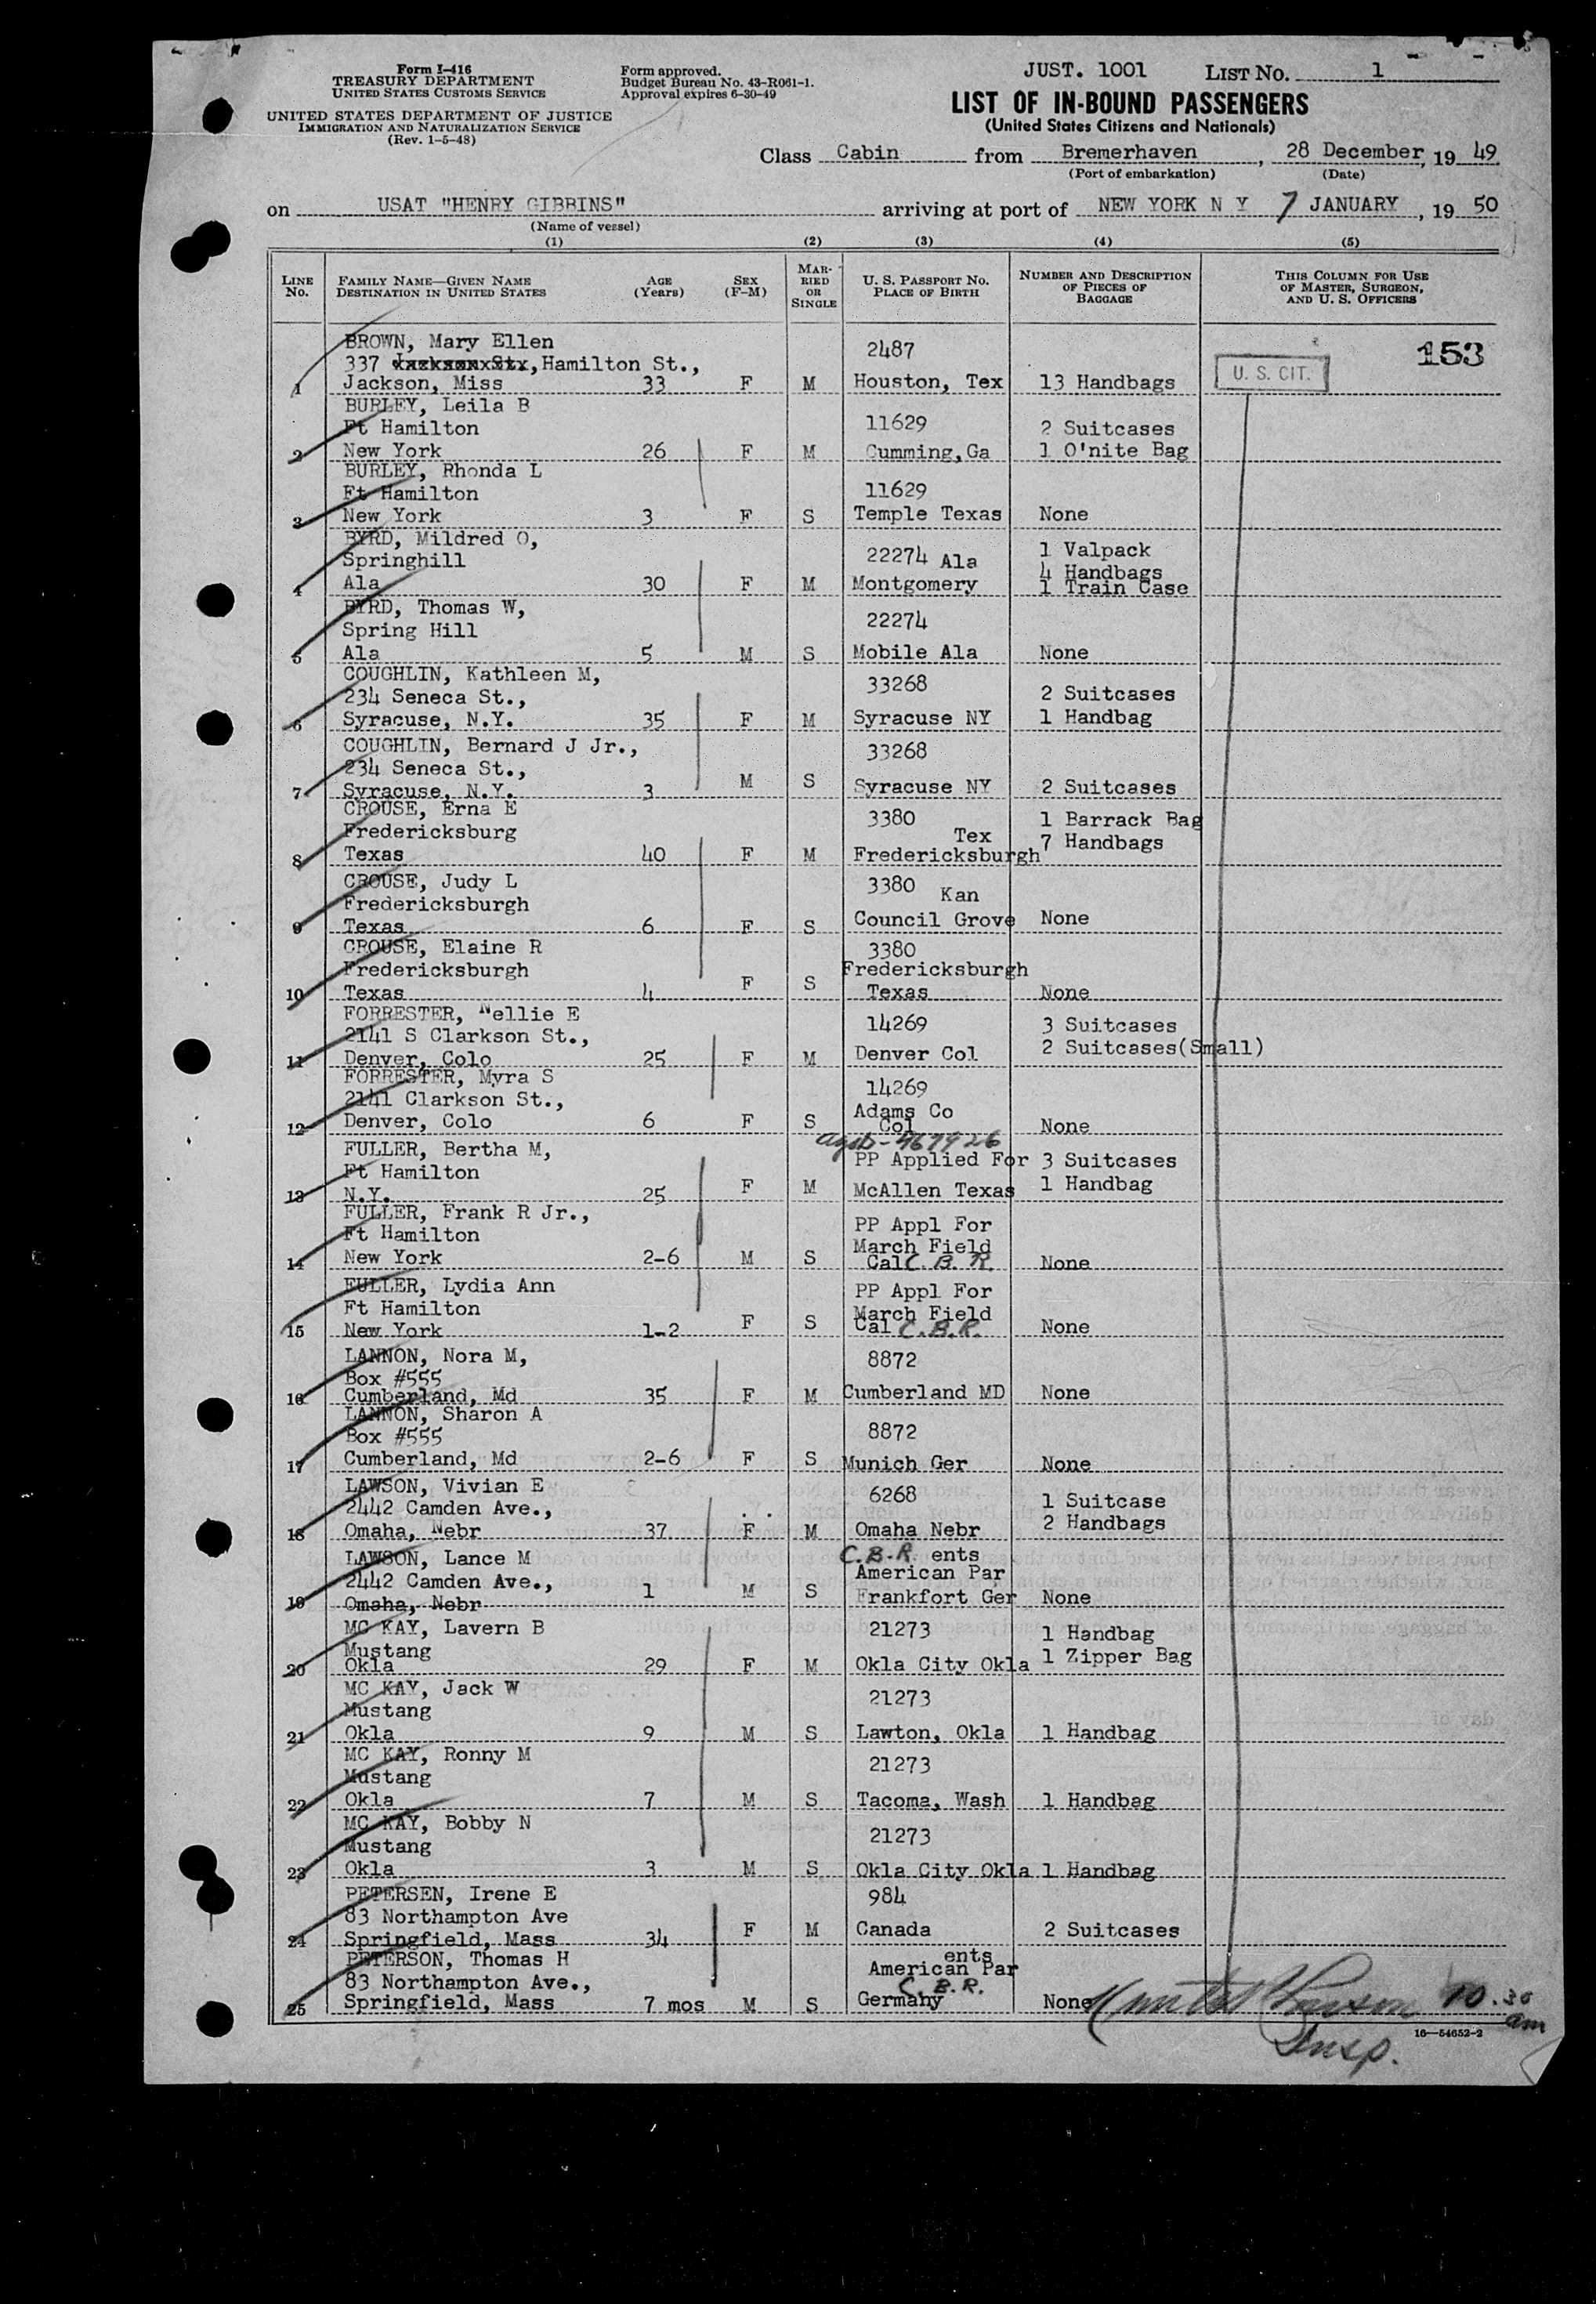 Form I-416
TREASURY DEPARTMENT
UNITED STATES CUSTOMS SERVICE
UNITED STATES DEPARTMENT OF JUSTICE
IMMIGRATION AND NATURALIZATION SERVICE
(Rev. 1-5-48)
Form approved.
Budget Bureau No. 43-R061-1.
Approval expires 6-30-49
JUST. 1001 LIST NO. 1
LIST OF IN-BOUND PASSENGERS
(United States Citizens and Nationals)
Class Cabin from Bremerhaven, 28 December, 19 49
(Port of embarkation) (Date)
on USAT "HENRY GIBBINS" arriving at port of NEW YORK N Y 7 JANUARY, 19 50
(Name of vessel)
(1) (2) (3) (4) (5)
LINE NO.
FAMILY NAME—GIVEN NAME
DESTINATION IN UNITED STATES
AGE (Years)
SEX (F-M)
MARRIED OR SINGLE
U. S. PASSPORT NO.
PLACE OF BIRTH
NUMBER AND DESCRIPTION OF PIECES OF BAGGAGE
THIS COLUMN FOR USE OF MASTER, SURGEON, AND U. S. OFFICERS
153
U. S. CIT.
BROWN, Mary Ellen 2487
337 Hamilton St.,
1 Jackson, Miss 33 F M Houston, Tex 13 Handbags
BURLEY, Leila B 11629
Ft Hamilton 2 Suitcases
2 New York 26 F M Cumming,Ga 1 O'nite Bag
BURLEY, Rhonda L 11629
Ft Hamilton
3 New York 3 F S Temple Texas None
BYRD, Mildred O, 1 Valpack
Springhill 22274 Ala 4 Handbags
4 Ala 30 F M Montgomery 1 Train Case
BYRD, Thomas W, 22274
Spring Hill
5 Ala 5 M S Mobile Ala None
COUGHLIN, Kathleen M, 33268
234 Seneca St., 2 Suitcases
6 Syracuse, N.Y. 35 F M Syracuse NY 1 Handbag
COUGHLIN, Bernard J Jr., 33268
234 Seneca St.,
7 Syracuse, N.Y. 3 M S Syracuse NY 2 Suitcases
CROUSE, Erna E 3380 1 Barrack Bag
Fredericksburg Tex 7 Handbags
8 Texas 40 F M Fredericksburgh
CROUSE, Judy L 3380 Kan
Fredericksburgh
9 Texas 6 F S Council Grove None
CROUSE, Elaine R 3380
Fredericksburgh Fredericksburgh
10 Texas 4 F S Texas None
FORRESTER, Nellie E 14269 3 Suitcases
2141 S Clarkson St., 2 Suitcases(Small)
11 Denver, Colo 25 F M Denver Col
FORRESTER, Myra S 14269
2141 Clarkson St., Adams Co
12 Denver, Colo 6 F S Col None
467926
FULLER, Bertha M, PP Applied For 3 Suitcases
Ft Hamilton 1 Handbag
13 N.Y. 25 F M McAllen Texas
FULLER, Frank R Jr., PP Appl For
Ft Hamilton March Field
14 New York 2-6 M S Cal C. B. R. None
FULLER, Lydia Ann PP Appl For
Ft Hamilton March Field
15 New York 1-2 F S Cal C.B.R. None
LANNON, Nora M, 8872
Box #555
16 Cumberland, Md 35 F M Cumberland MD None
LANNON, Sharon A 8872
Box #555
17 Cumberland, Md 2-6 F S Munich Ger None
LAWSON, Vivian E 6268 1 Suitcase
2442 Camden Ave., 2 Handbags
18 Omaha, Nebr 37 F M Omaha Nebr
LAWSON, Lance M C.B.R. ents
2442 Camden Ave., American Par
19 Omaha, Nebr 1 M S Frankfort Ger None
MC KAY, Lavern B 21273 1 Handbag
Mustang 1 Zipper Bag
20 Okla 29 F M Okla City Okla
MC KAY, Jack W 21273
Mustang
21 Okla 9 M S Lawton, Okla 1 Handbag
MC KAY, Ronny M 21273
Mustang
22 Okla 7 M S Tacoma, Wash 1 Handbag
MC KAY, Bobby N 21273
Mustang
23 Okla 3 M S Okla City Okla 1 Handbag
PETERSEN, Irene E 984
83 Northampton Ave
24 Springfield, Mass 34 F M Canada 2 Suitcases
PETERSON, Thomas H ents
83 Northampton Ave., American Par
C.B.R.
25 Springfield, Mass 7 mos M S Germany None
10.30 am
Insp.
16—54652-2